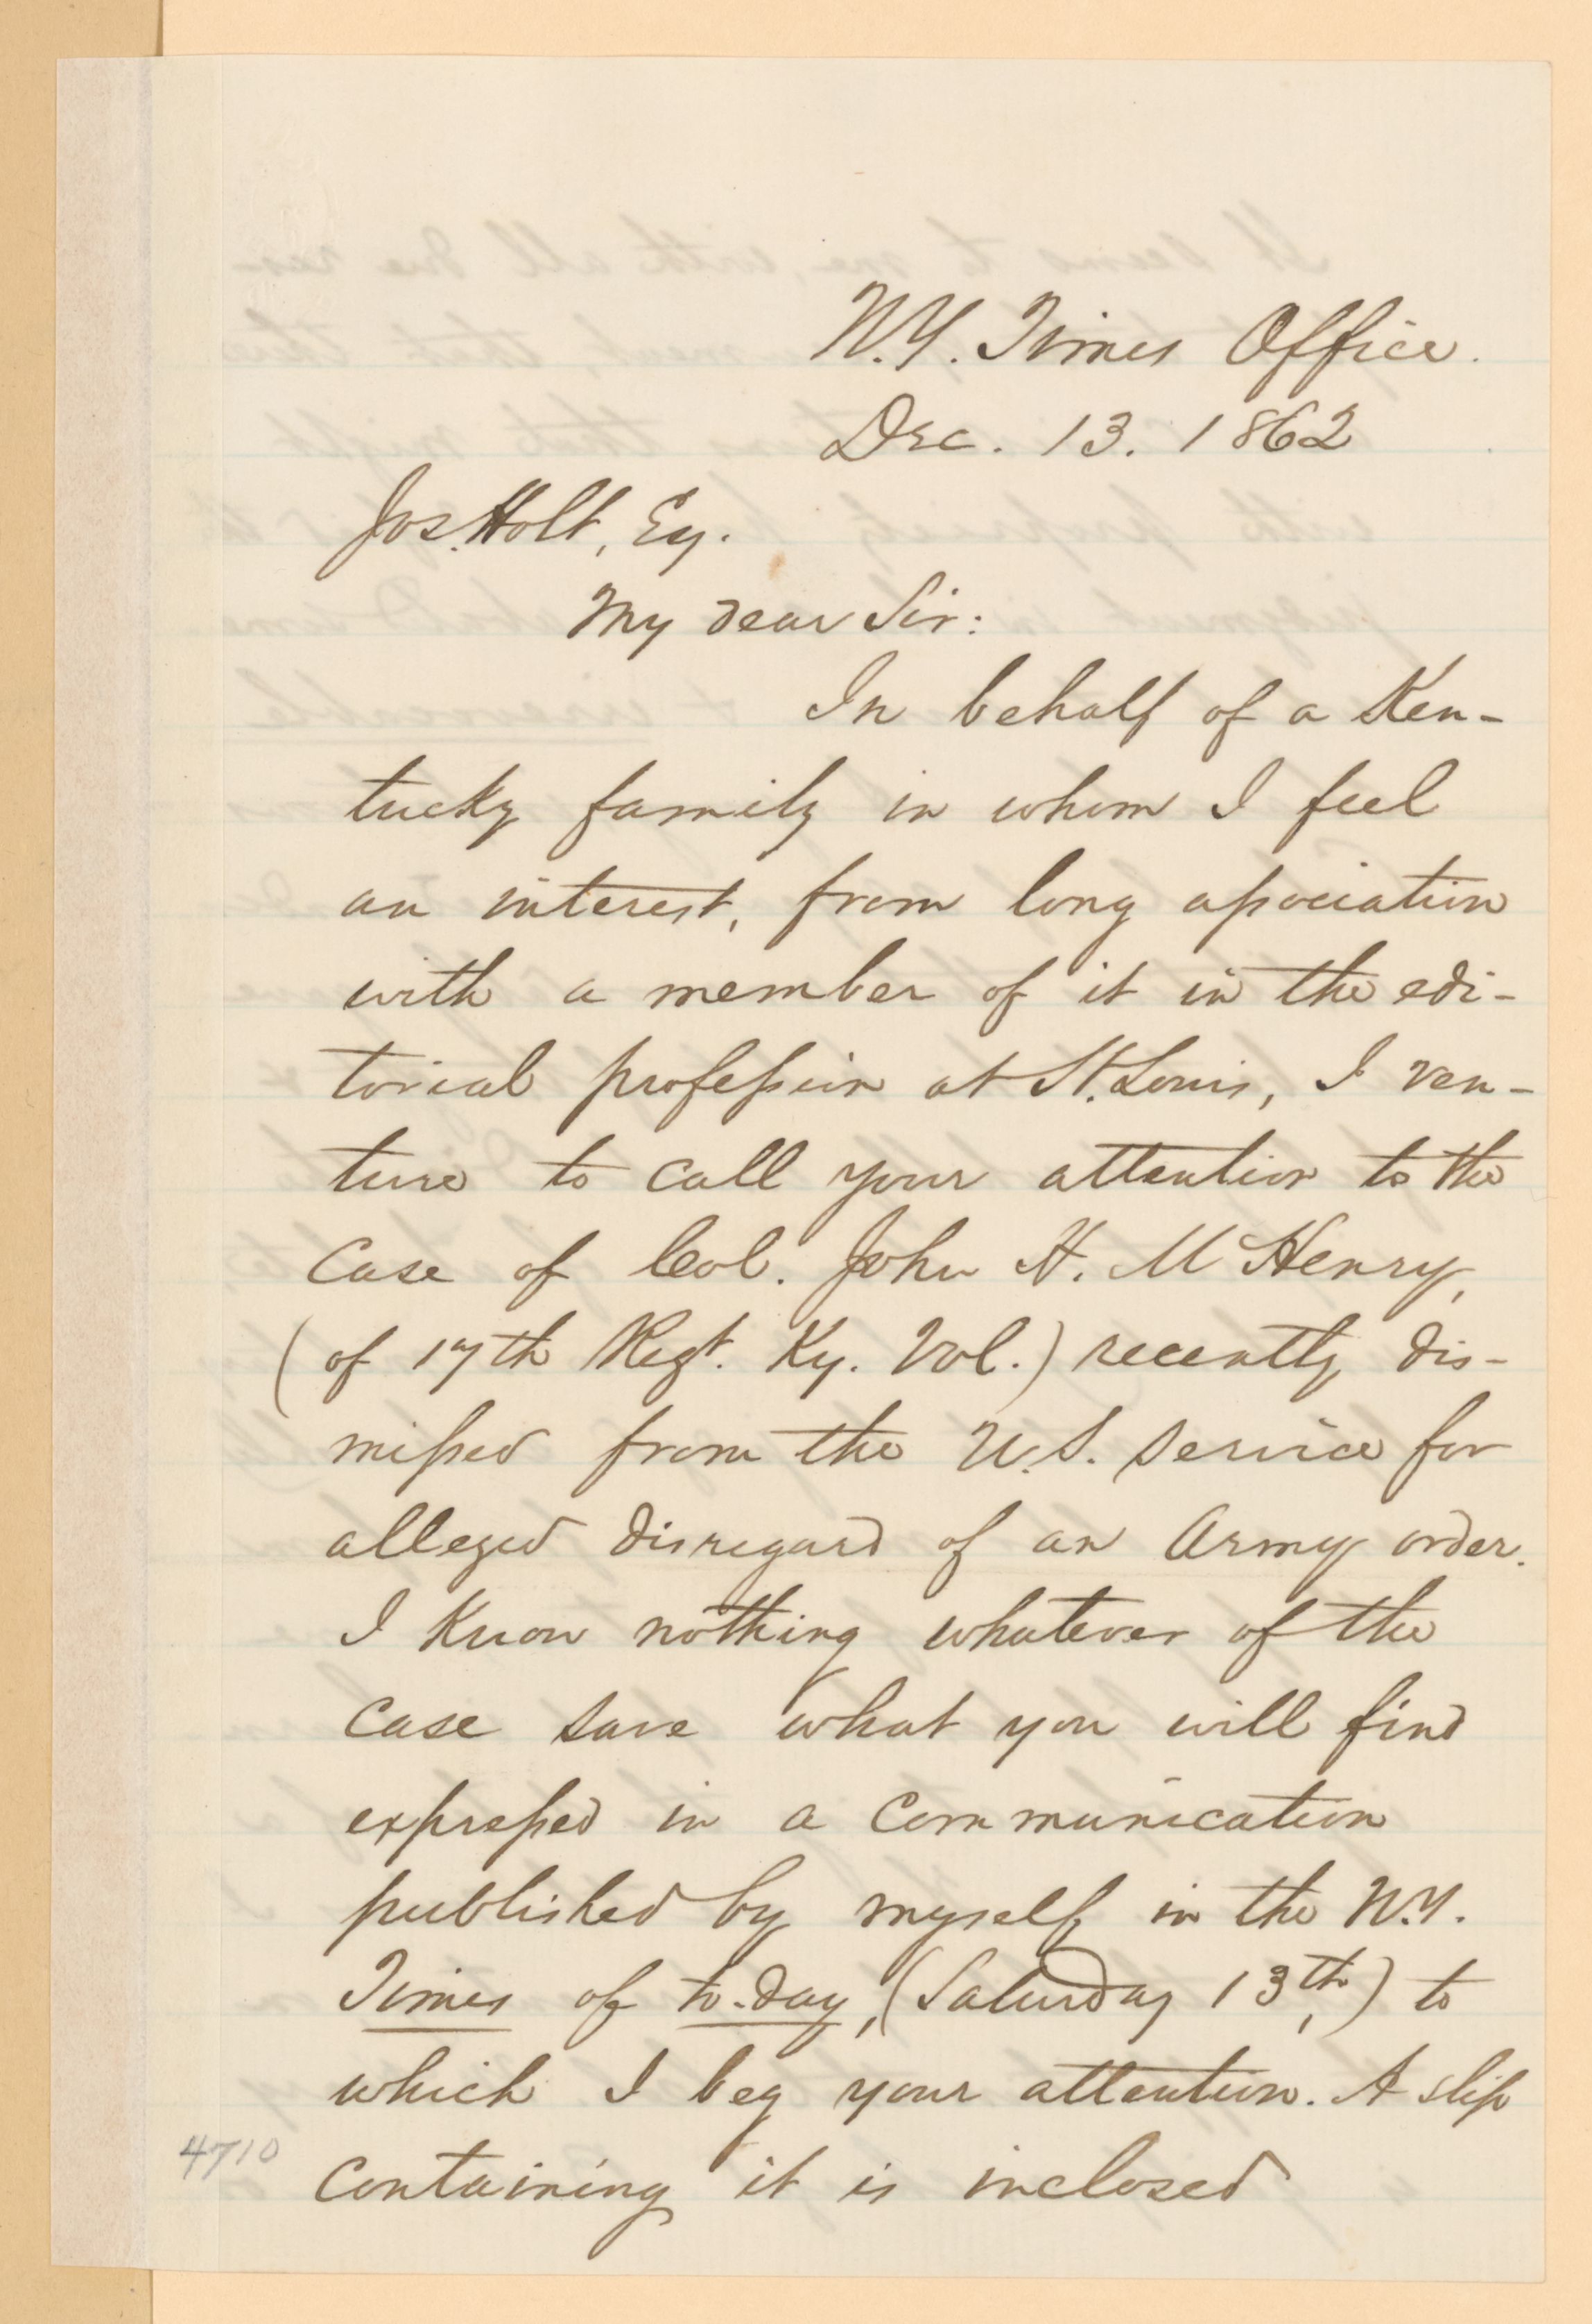 N.Y. Times Office.
Dec. 13. 1862
Jos. Holt, Esq.
My dear Sir:
In behalf of a Ken-
tucky family in whom I feel
an interest, from long association
with a member of it in the edi-
torial profession at St. Louis, I ven-
ture to call your attention to the
case of Col. John H. McHenry,
(of 17th Regt. Ky. Vol.) recently dis-
missed from the U.S. service for
alleged disregard of an Army order.
I know nothing whatever of the
case save what you will find
expressed in a communication
published by myself in the N.Y.
Times of to-day, (Saturday 13th,) to
which I beg your attention. A slip
4710
containing it is inclosed